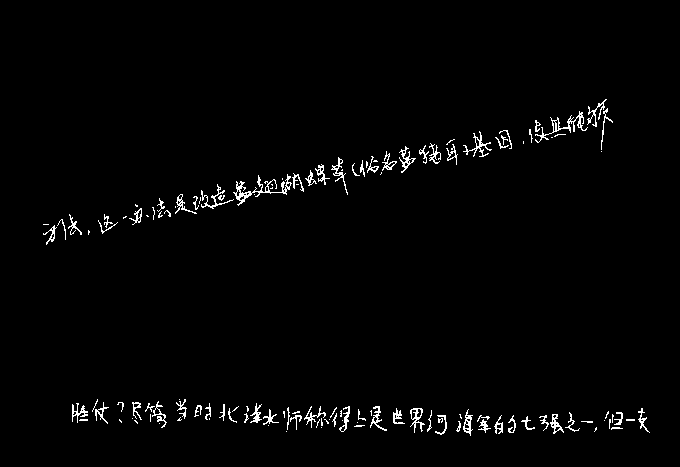 方法，这一办法是改造蓝翅蝴蝶草（俗名蓝猪耳）基因，使其能够
胜仗？尽管当时北洋水师称得上是世界河海军的七强之一，但一支